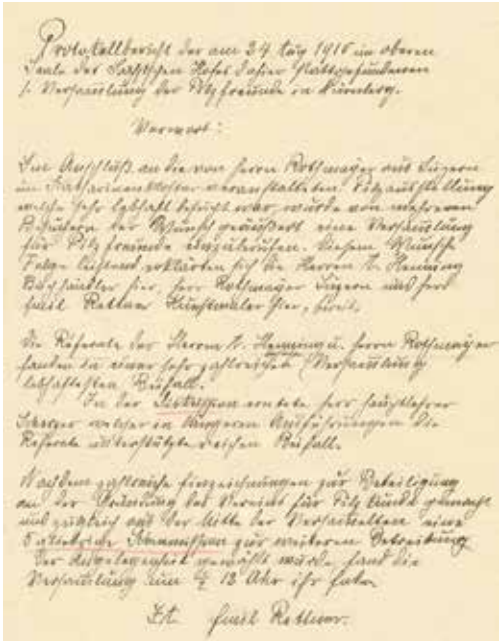 Protokollbericht der am 24 Aug 1915 im oberen
Saale des Sächsischen Hofes dahier stattgefundenen
1. Versammlung der Pilzfreunde in Nürnberg.
Vorwort:
Im Anschluß an die von Herrn Rothmayer aus Luzern
im Katharinenkloster veranstalteten Pilzausstellung
welche sehr lebhaft besucht war, wurde von mehreren
Besuchern der Wunsch geäußert eine Versammlung
für Pilzfreunde einzuberufen. Diesem Wunsche
Folge leistend erklärten sich die Herren A. Henning
Buchhändler hier, Herr Rothmayer Luzern und Herr
Emil Rettner Kunstmaler hier, bereit.
Die Referate der Herren A. Henning u. Herrn Rothmayer
fanden in einer sehr zahlreichen Versammlung
lebhaftesten Beifall.
In der Diskussion erntete Herr Hauptlehrer
Scherzer welcher in längeren Ausführungen die
Referate unterstützte reichen Beifall.
Nachdem zahlreiche Einzeichnungen zur Beteiligung
an der Gründung des Vereins für Pilzkunde gemacht
und zugleich aus der Mitte der Versammelten eine
5 gliedrige Kommission zur weiteren Betreibung
der Angelegenheit gewählt wurde, fand die
Versammlung um 12 Uhr ihr Ende.
Emil Rettner.